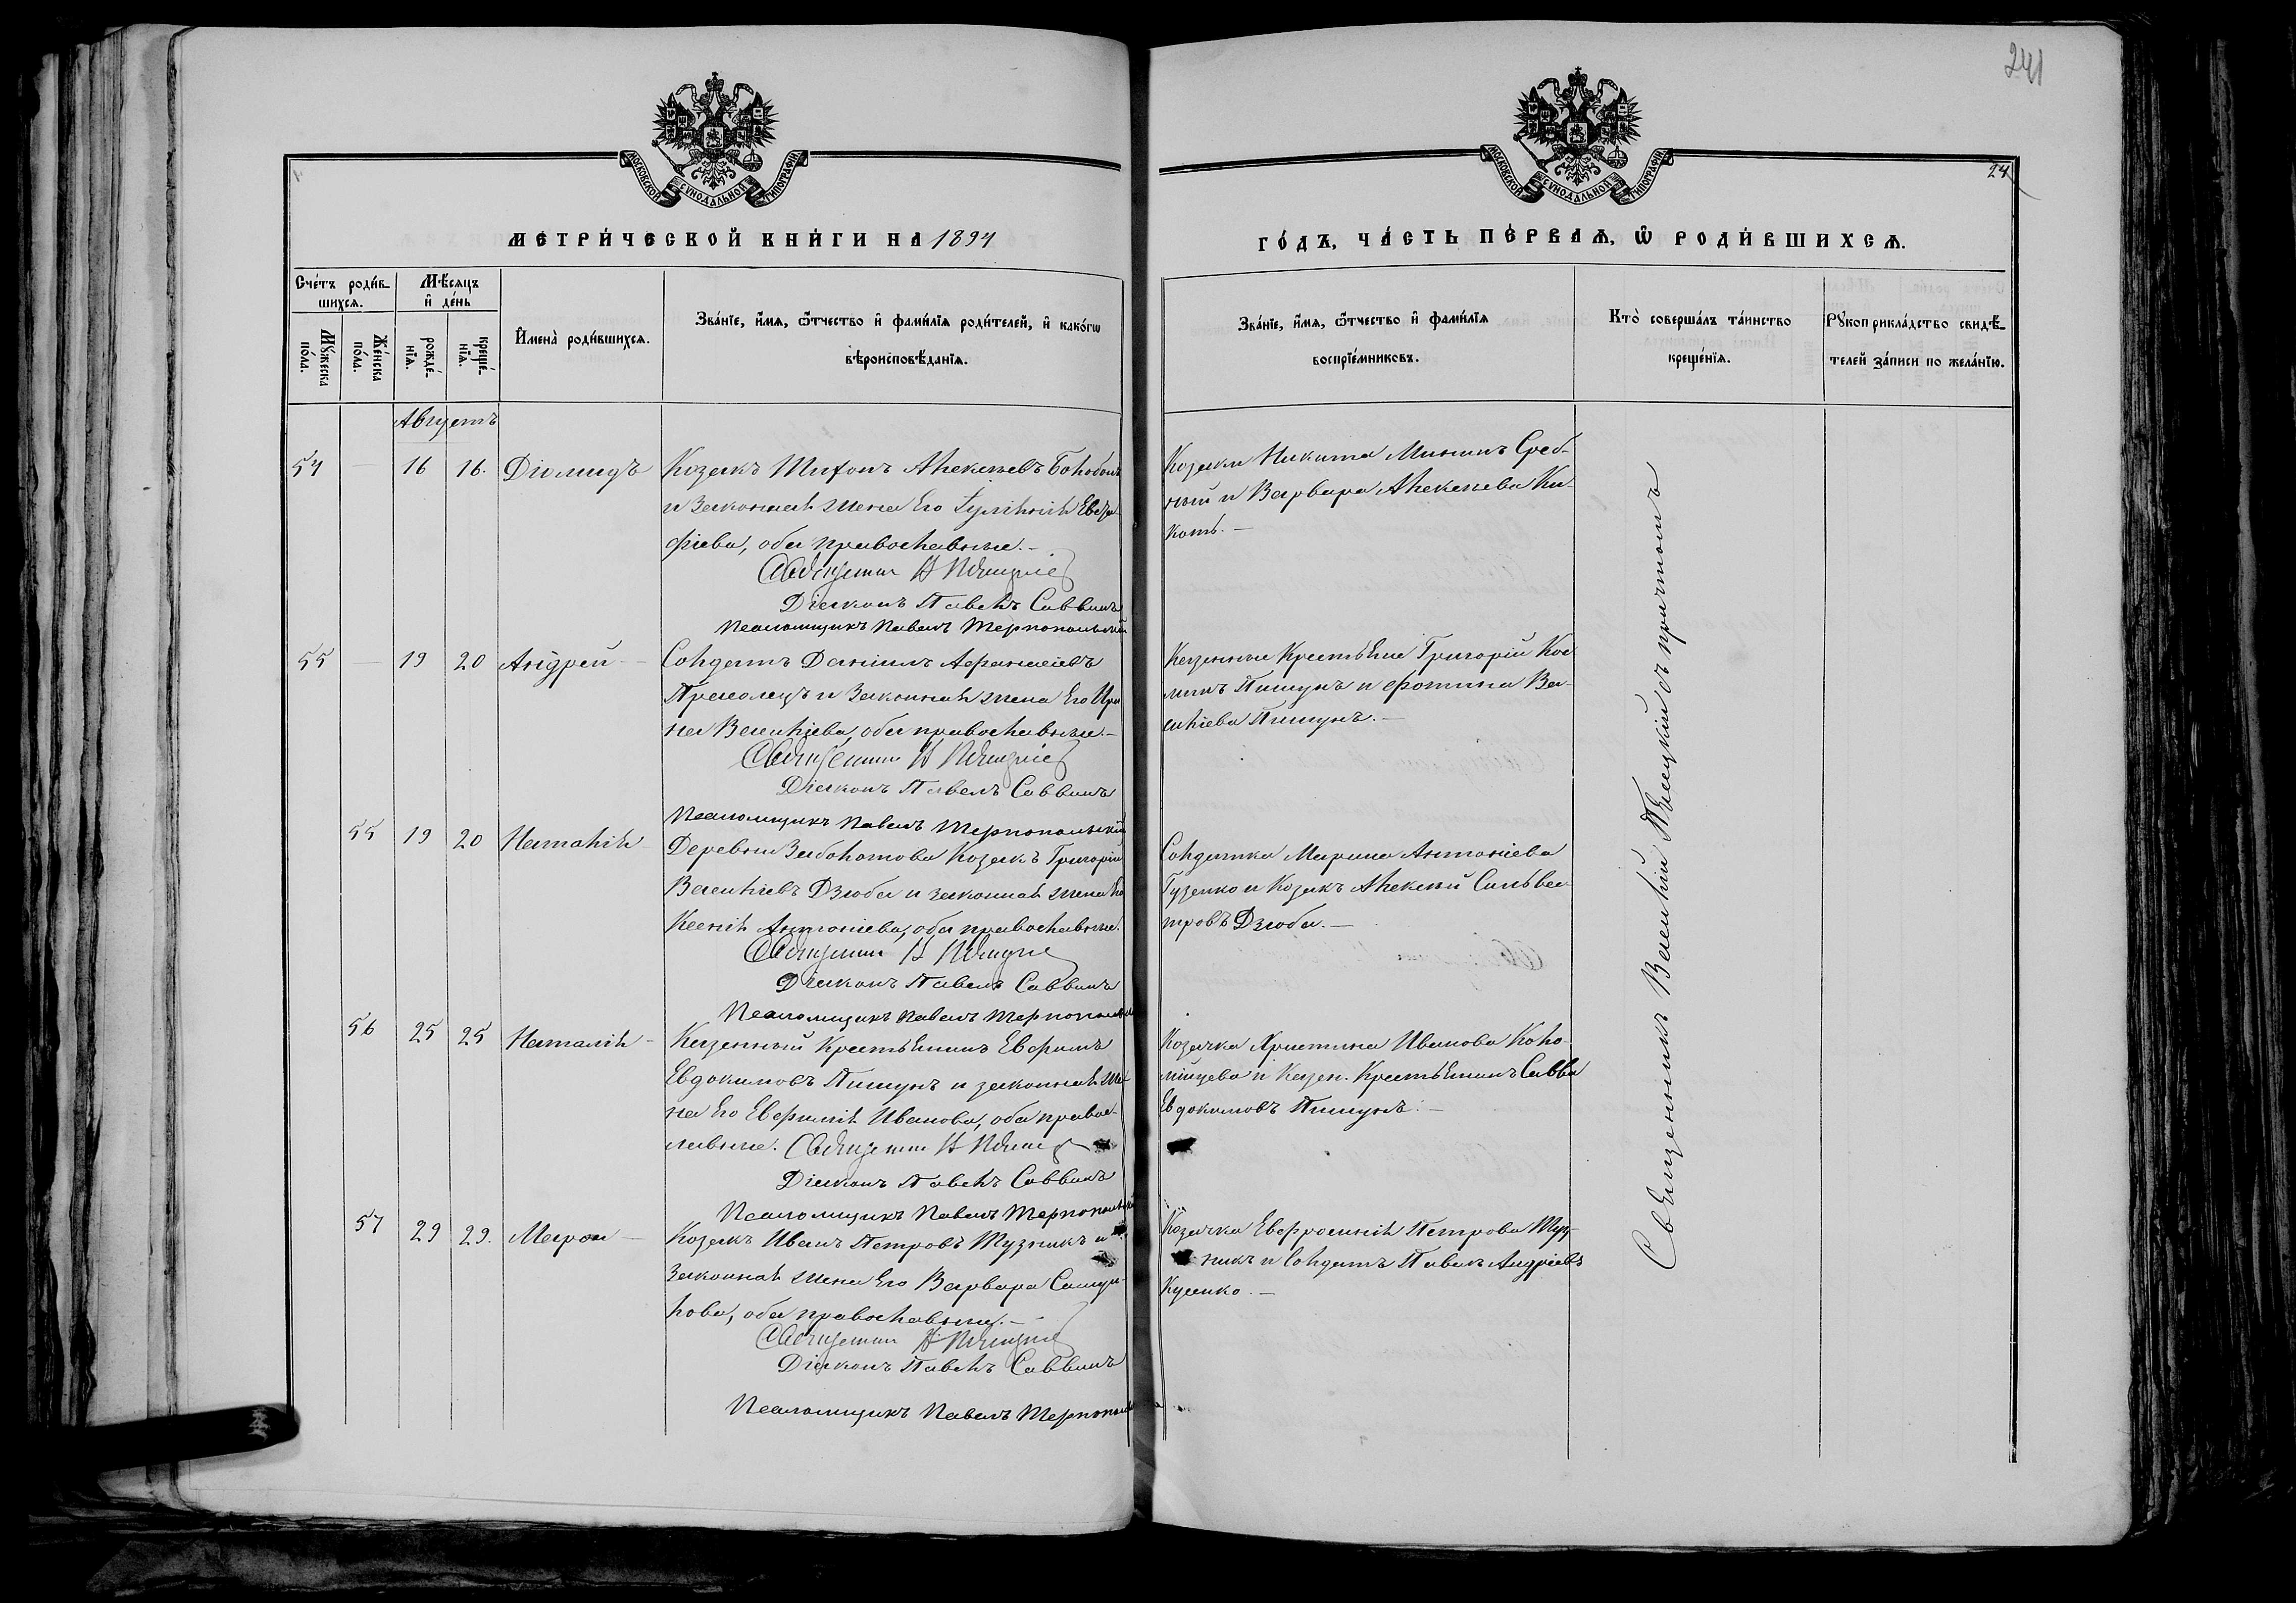 241
24
МОСКОВСКОЙ СУНОДАЛЬНОЙ ТИПОГРАФІИ
МОСКОВСКОЙ СУНОДАЛЬНОЙ ТИПОГРАФІИ
МЕТРИ́ЧЕСКОЙ КНИ́ГИ НА 1894
ГО́ДЪ, ЧА́СТЬ ПЕ́РВАЯ, Ѽ РОДИ́ВШИХСЯ.
Сче́тъ роди́в-
шихся.
Мꙋжеска по́ла.
Же́нска по́ла.
Мѣ́сяцъ
и҆ де́нь
рожде́-
нїѧ.
креще́-
нїѧ.
И҆мена̀ роди́вшихсѧ.
Зва́нїе, и҆́мѧ, ѻ҆́тчество и҆ фами́лїѧ роди́телей, и҆ како́гѡ
вѣроисповѣ́данїѧ.
Зва́нїе, и҆́мѧ, ѻ҆́тчество и҆ фами́лїѧ
воспрїе́мниковъ.
Кто̀ соверша́лъ та́инство
креще́нїѧ.
Рꙋкоприкла́дство свидѣ́-
телей за́писи по жела́нїю.
Августъ
54 — 16 16. Діомидъ
Козакъ Тихонъ Алексѣевъ
и законная жена его Евста-
фіева, оба православные.—
Діаконъ Павелъ Саввинъ
Псаломщикъ Павелъ Тернопольскій
Козаки Никита Мининъ Греб-
ный и Варвара Алексѣева Ки-
коть.—
55 — 19 20 Андрей
Солдатъ Даніилъ Афанасіевъ
и законная жена его Ири
на Василіева, оба православные.—
Діаконъ Павелъ Саввинъ
Псаломщикъ Павелъ Тернопольскій
Казенные крестьяне Григорій Кос
минъ Пишунъ и Фотина Ва-
силіева Пишунъ.—
55 19 20 Наталія
Деревни Заболотова козакъ Григорій
Василіевъ Дзюба и законная жена его
Ксенія Антоніева, оба православные.
Діаконъ Павелъ Саввинъ
Псаломщикъ Павелъ Тернопольскій
Солдатка Марина Антоніева
Гузенко и козакъ Алексѣй Сильвес-
тровъ Дзюба.—
56 25 25 Наталія —
Казенный крестьянинъ Евфимъ
Евдокимовъ Пишунъ и законная же-
на его Евфимія Иванова, оба правос-
лавные.
Діаконъ Павелъ Саввинъ
Псаломщикъ Павелъ Тернопольскій
Козачка Христина Иванова Коло-
мійцева и казен. крестьянинъ Савва
Евдокимовъ Пишунъ.—
57 29 29. Мавра —
Козакъ Иванъ Петровъ Музыкъ и
законная жена его Варвара Самуи-
лова, оба православные.—
Діаконъ Павелъ Саввинъ
Псаломщикъ Павелъ Тернополь
Козачка Евфросинія Петрова Муз-
ыкъ и солдатъ Павелъ Андріевъ
Куценко.—
Священникъ Василій Пѣвецкій съ причтомъ